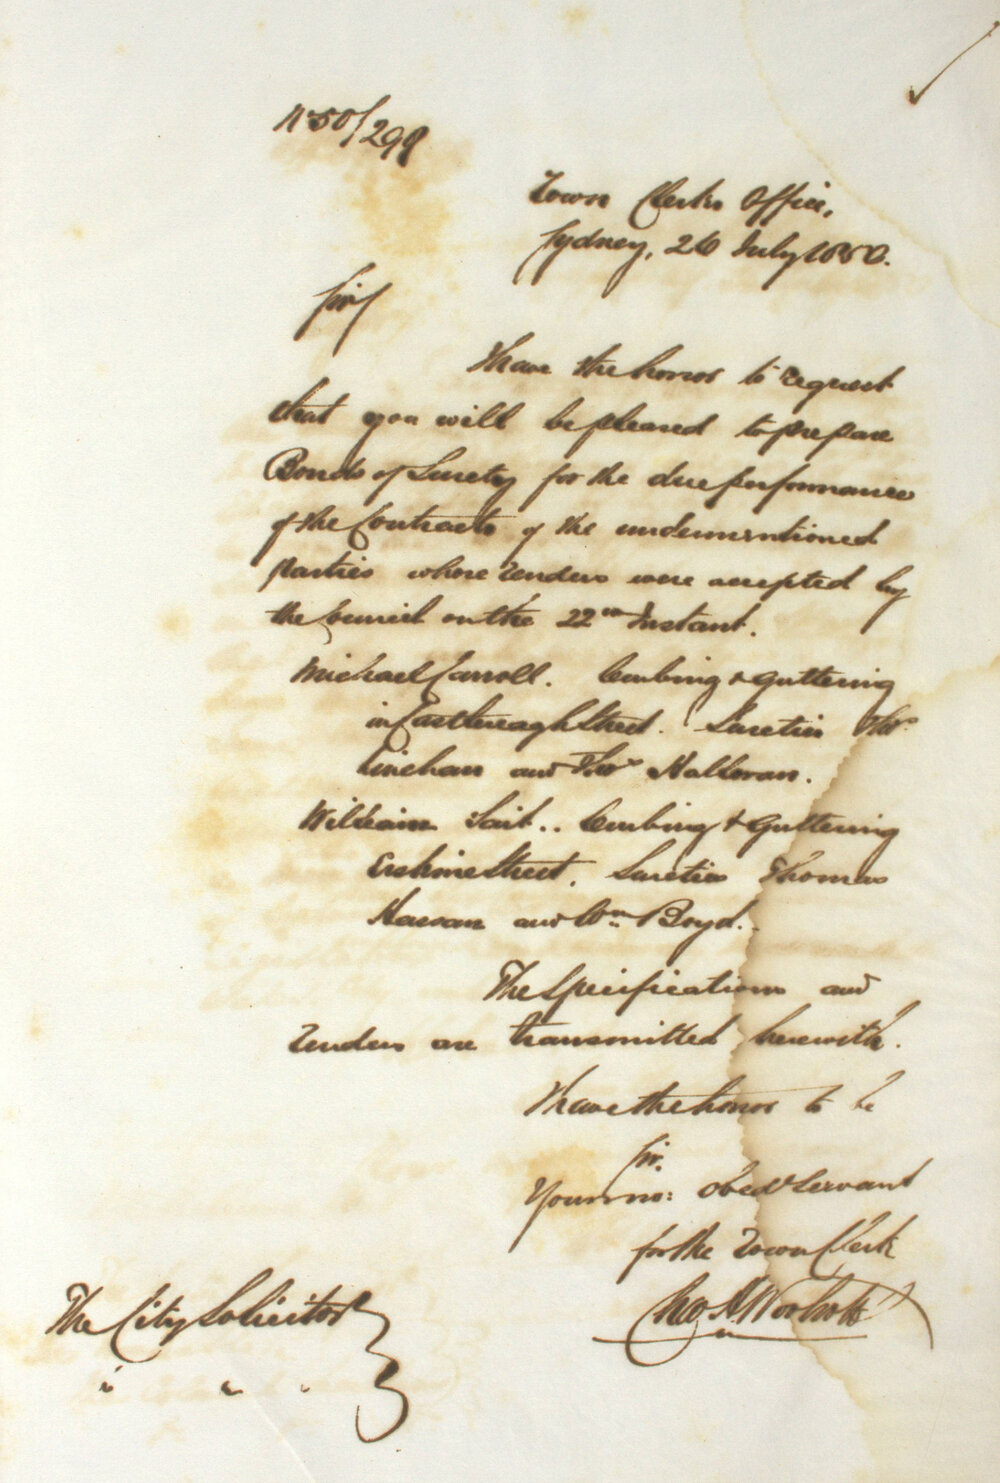 No 50/298
Town Clerks Office,
Sydney, 26 July 1850.
Sir/
I have the honor to request
that you will be pleased to prepare
Bonds of Surety for the due performance
of the Contracts of the undermentioned
parties whose Tenders were accepted by
the Council on the 22nd Instant.
Michael Carroll. Curbing & Guttering
in Castlereagh Street. Sureties Thos
Linehan and Thos Halloran.
William Tait.. Curbing & Guttering
Erskine Street. Sureties Thomas
and Wm Boyd.
The Specifications and
Tenders are transmitted herewith.
I have the honor to be
Sir.
Your mo: obedt Servant
for the Town Clerk
Chas H Woolcott
The City Solicitor